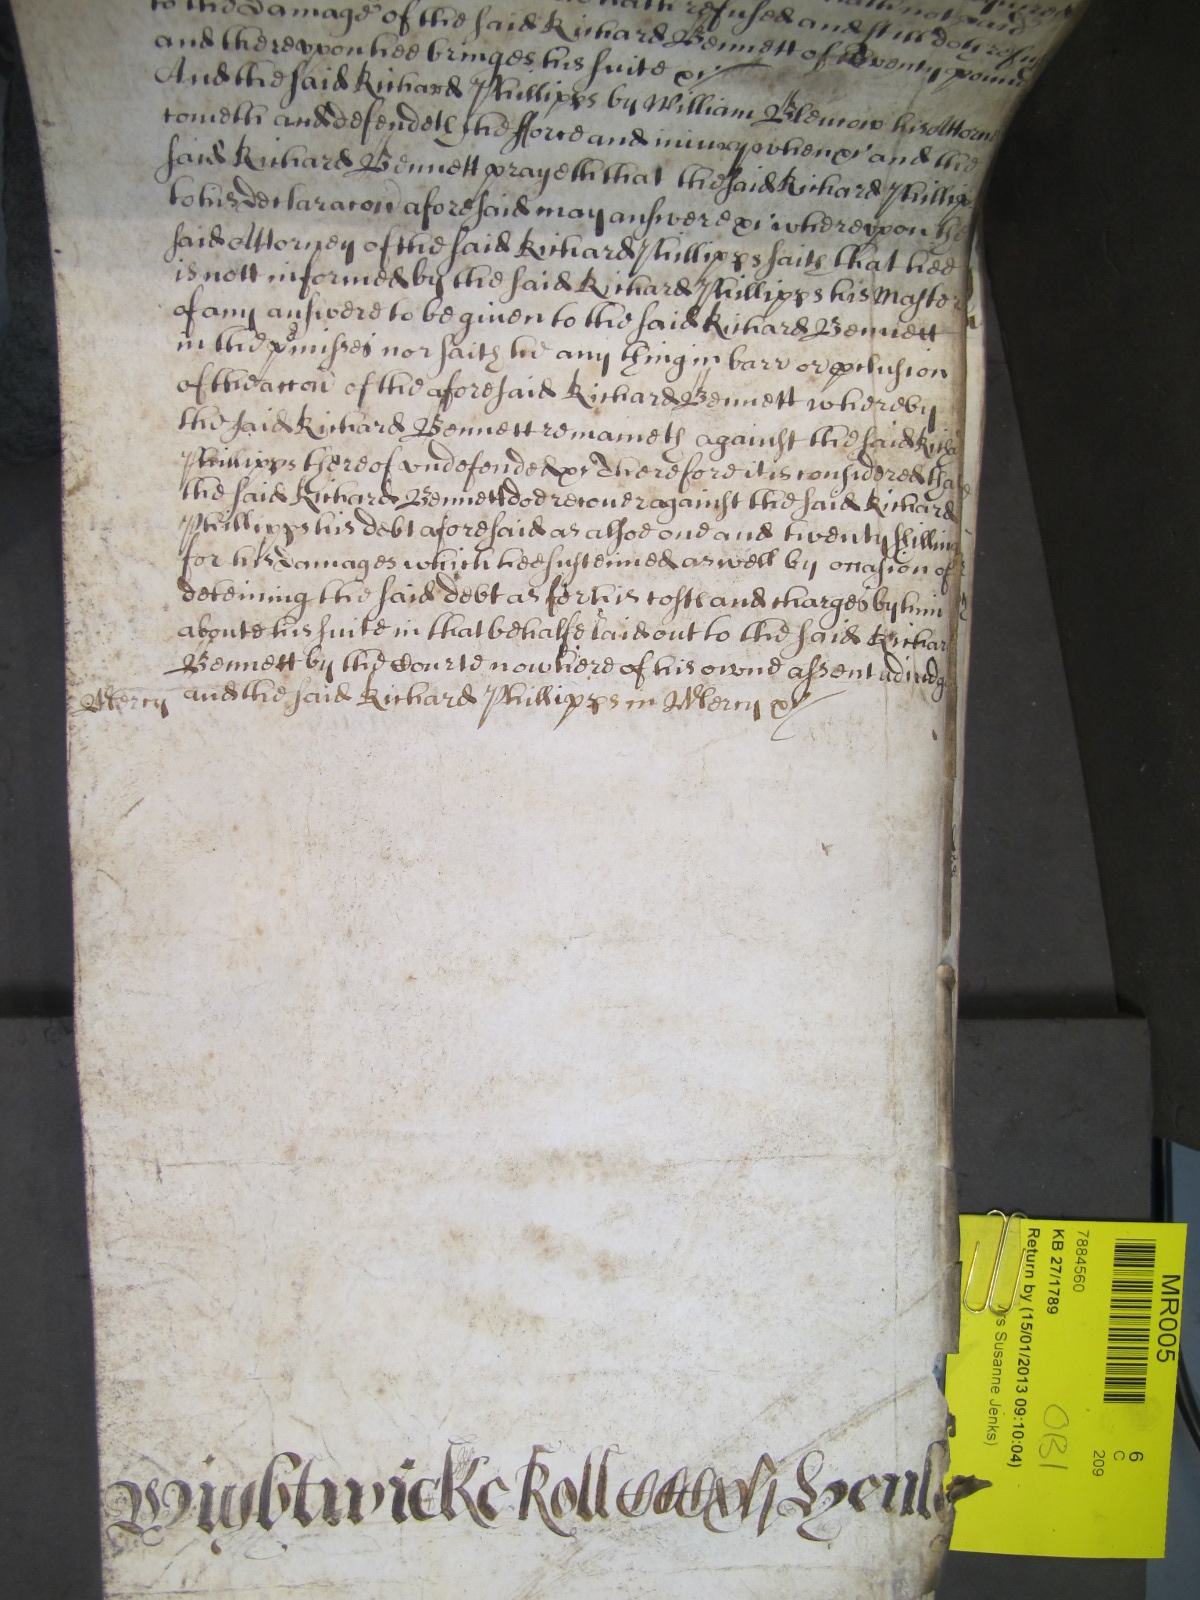 to the damage of the said Richard Bennett of twenty pound
and therevpon hee bringes his suite &c
And the said Richard Phillipps by William Blencow his Attorn
cometh and defendeth the fforce and iniury when &c and the
said Richard Bennett prayeth that the said Richard Phillip
to his declaracon aforesaid may answere &c wherevpon the
said Attorney of the said Richard Phillipps saith that hee
is nott informed by the said Richard Phillipps his Master
of any answere to be given to the said Richard Bennett
in the pmisses nor saith he any thing in barr or pclusion
of the accon of the aforesaid Richard Bennett whereby
the said Richard Bennett remaineth against the said Richa
Phillipps thereof vndefended &c Therefore it is considered tha
the said Richard Bennett doe recover against the said Richard
Phillipps his debt aforesaid as alsoe one and twenty shilling
for his damages which hee susteined as well by occasion of
deteining the said debt as for his costs and charges by him
aboute his suite in that behalfe laid out to the said Richar
Bennett by the Courte now here of his owne assent adiudg
Mercy and the said Richard Phillipps in Mercy &c
Wightwicke Roll
MR005
6
C
209
7884560
KB 27/1789
Return by (15/01/2013 09:10:04)
Susanne Jenks)